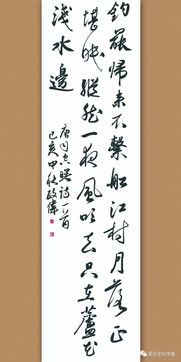 钓罢归来不系船江村月落正
堪眠纵然一夜风吹去只在芦花
浅水边
唐司空曙诗一首
己亥甲秋政伟